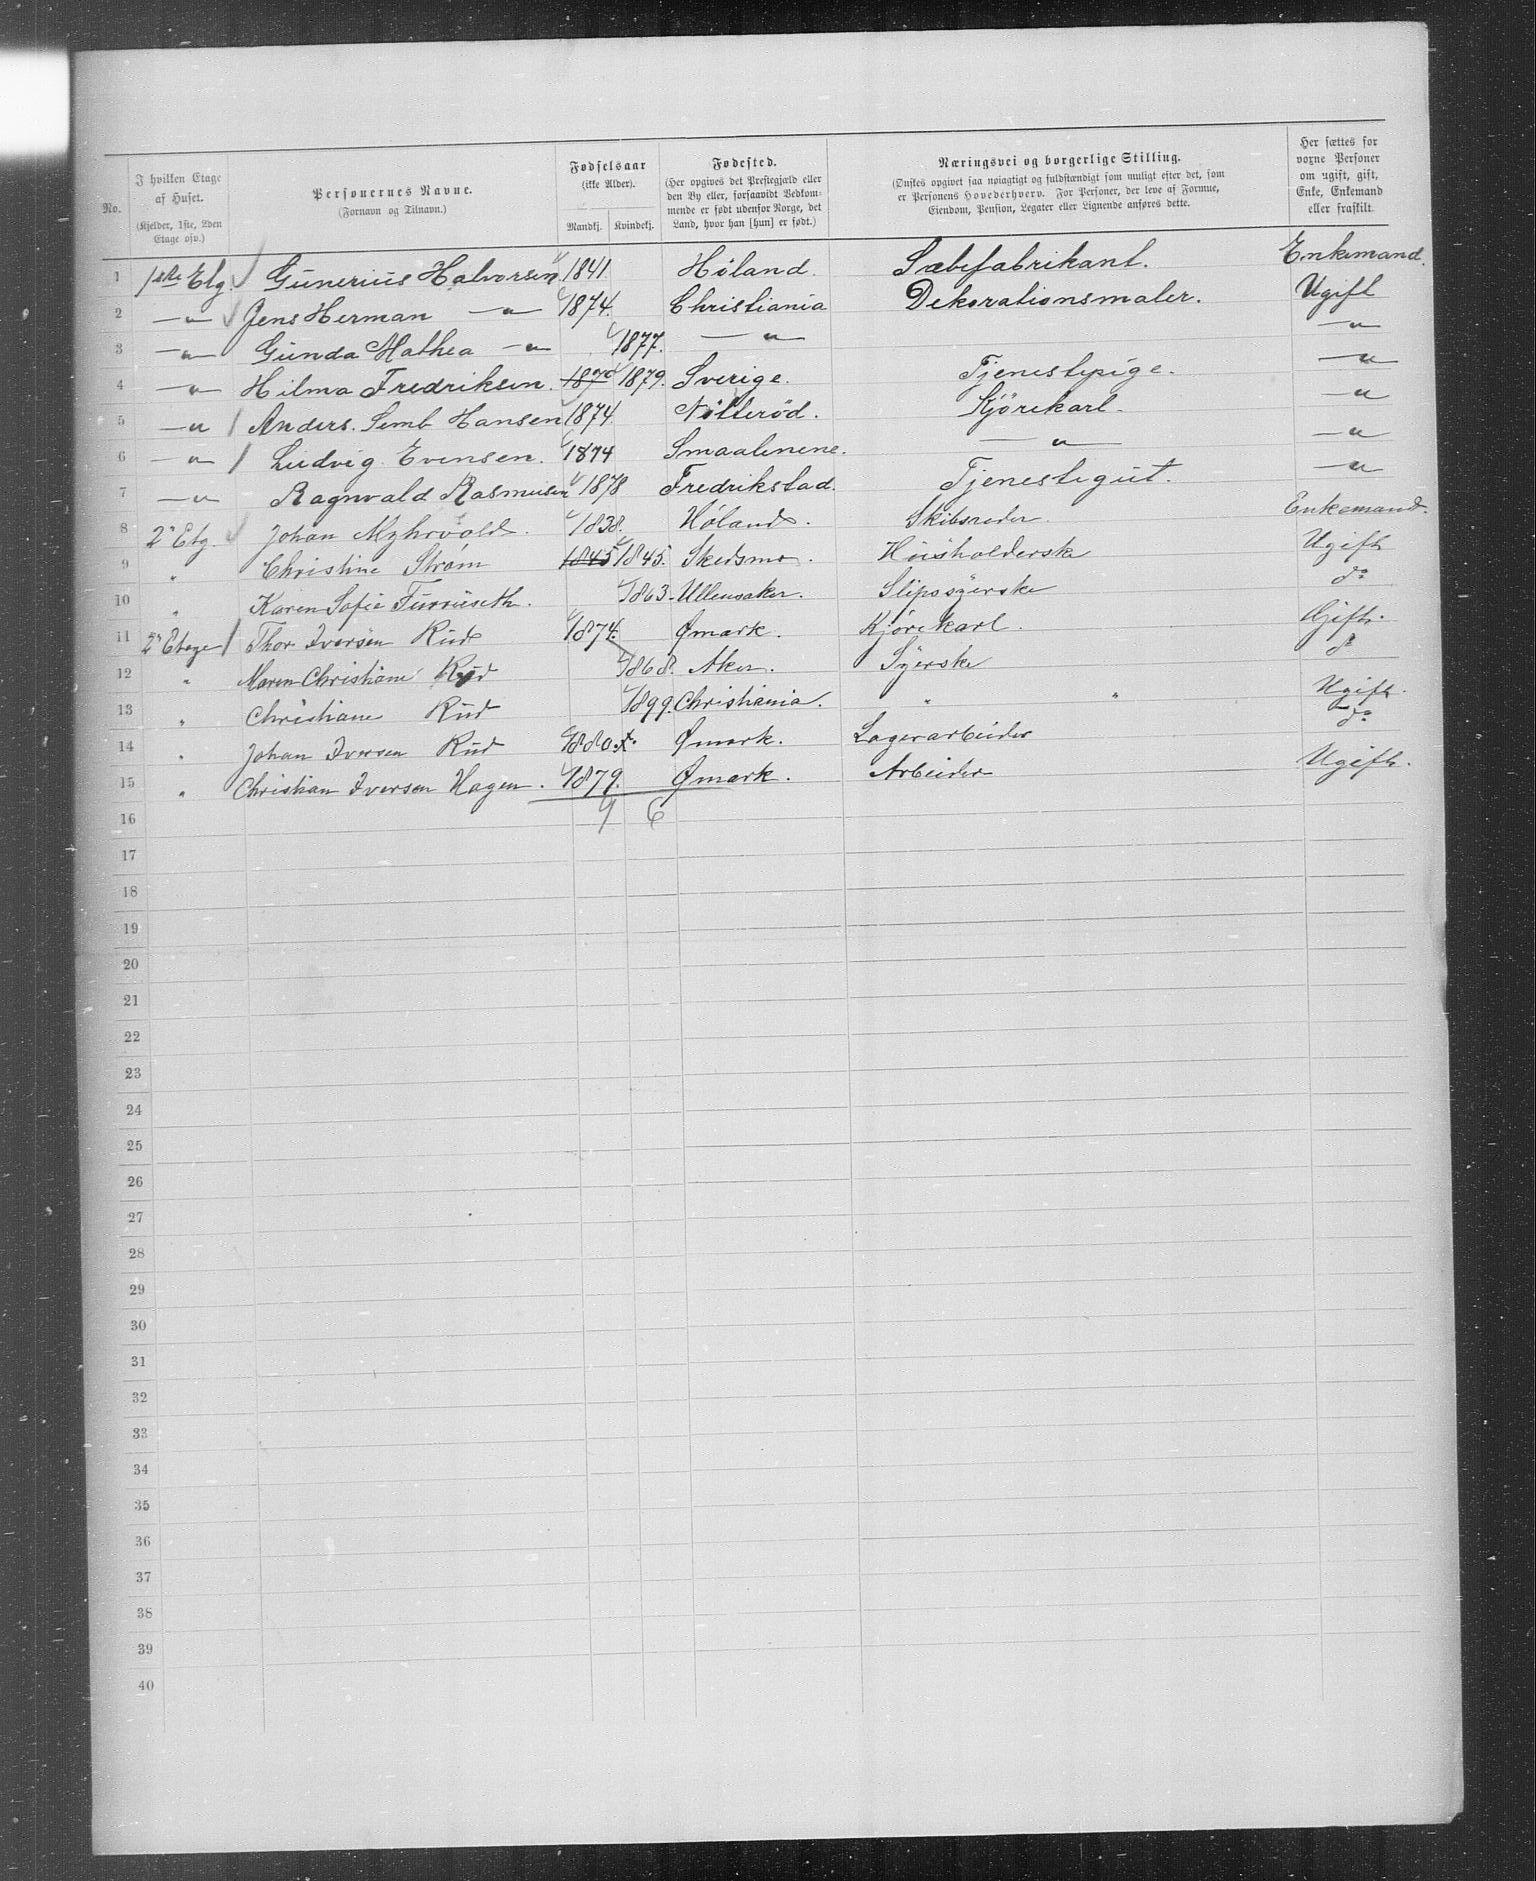 No. | I hvilken Etage af Huset. (Kjelder, 1ste, 2den Etage osv.) | Personernes Navne. (Fornavn og Tilnavn.) | Fødselsaar (ikke Alder). Mandkj. Kvindekj. | Fødested. (Her opgives det Prestegjæld eller den By eller, forsaavidt Vedkommende er født udenfor Norge, det Land, hvor han [hun] er født.) | Næringsvei og borgerlige Stilling. (Ønskes opgivet saa nøiagtigt og fuldstændigt som muligt efter det, som er Personens Hovederhverv. For Personer, der leve af Formue, Eiendom, Pension, Legater eller Lignende anføres dette. | Her sættes for voxne Personer om ugift, gift, Enke, Enkemand eller fraskilt.
1 1ste Etg Gunerius Halvorsen 1841 Høland. Sæbefabrikant. Enkemand.
2 —"— Jens Herman —"— 1874. Christiania Dekorationsmaler. Ugift
3 —"— Gunda Mathea —"— 1877. —"— —"—
4 —"— Hilma Fredriksen. 1879 1879. Sverige. Tjenestepige. —"—
5 —"— Anders. Semb Hansen 1874 Nøtterød. Kjørekarl. —"—
6 —"— Ludvig Evensen. 1874 Smaalenene. —"— —"—
7 —"— Ragnvald Rasmusen 1878 Fredrikstad. Tjenestegut. —"—
8 2' Etg. Johan Myhrvold. 1838. Høland. Skibsreder. Enkemand.
9 " Christine Strøm 1845 1845. Skedsmo. Huusholderske Ugift
10 " Karen Sofie Furruseth. 1863. Ullensaker. Slipssyerske do
11 2' Etage Thor Iversen Rud 1874. Ømark. Kjørekarl. Gift.
12 " Maren Christiane Rud 1868. Aker. Syerske do
13 " Christiane Rud 1899. Christiania. " " Ugift.
14 " Johan Iversen Rud 1880. Ømark. Lagerarbeider do
15 " Christian Iversen Hagen. 1879. Ømark. Arbeider Ugift.
16 9 6
17
18
19
20
21
22
23
24
25
26
27
28
29
30
31
32
33
34
35
36
37
38
39
40